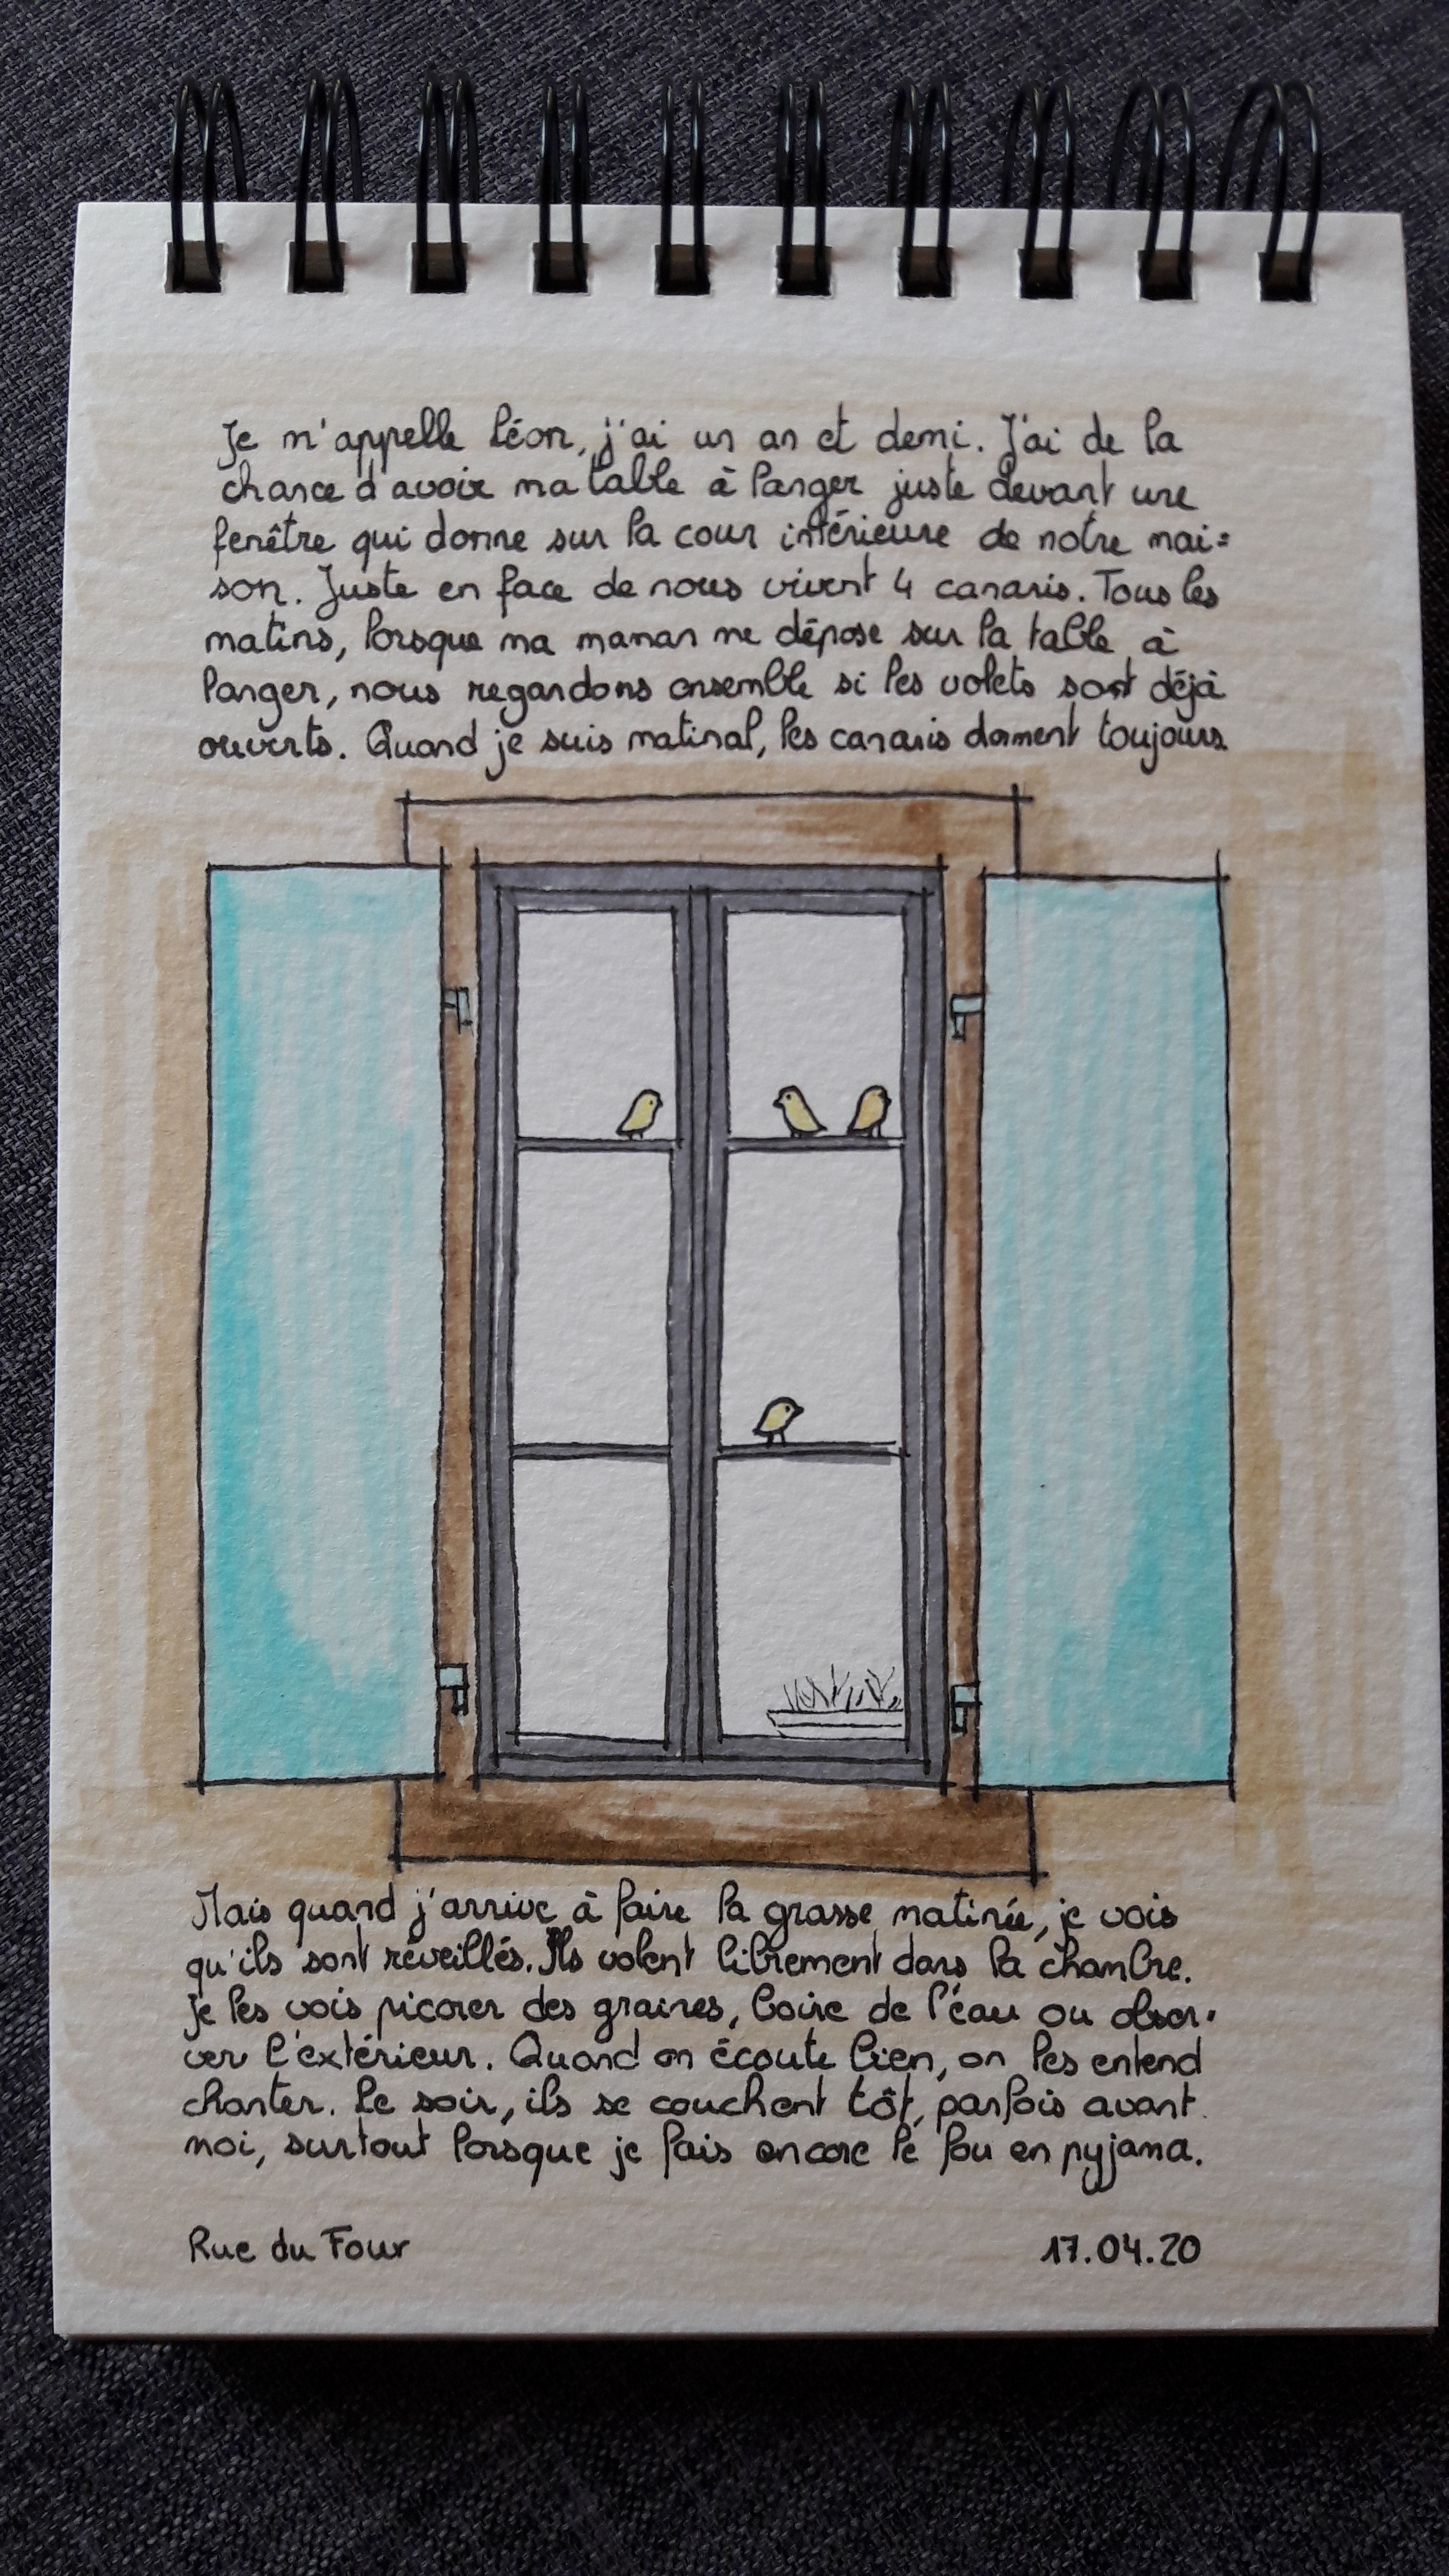 Je m'appelle Léon, j'ai un an et demi. J'ai de la
chance d'avoir ma table à langer juste devant une
fenêtre qui donne sur la cour intérieure de notre mai=
son. Juste en face de nous vivent 4 canaris. Tous les
matins, lorsque ma maman me dépose sur la table à
langer, nous regardons ensemble si les volets sont déjà
ouverts. Quand je suis matinal, les canaris dorment toujours.
Mais quand j'arrive à faire la grasse matinée, je vois
qu'ils sont réveillés. Ils volent librement dans la chambre.
Je les vois picorer des graines, boire de l'éau ou obser-
ver l'extérieur. Quand on écoute bien, on les entend
chanter. Le soir, ils se couchent tôt, parfois avant
moi, surtout lorsque je fais encore le fou en pyjama.
Rue du Four
17.04.20